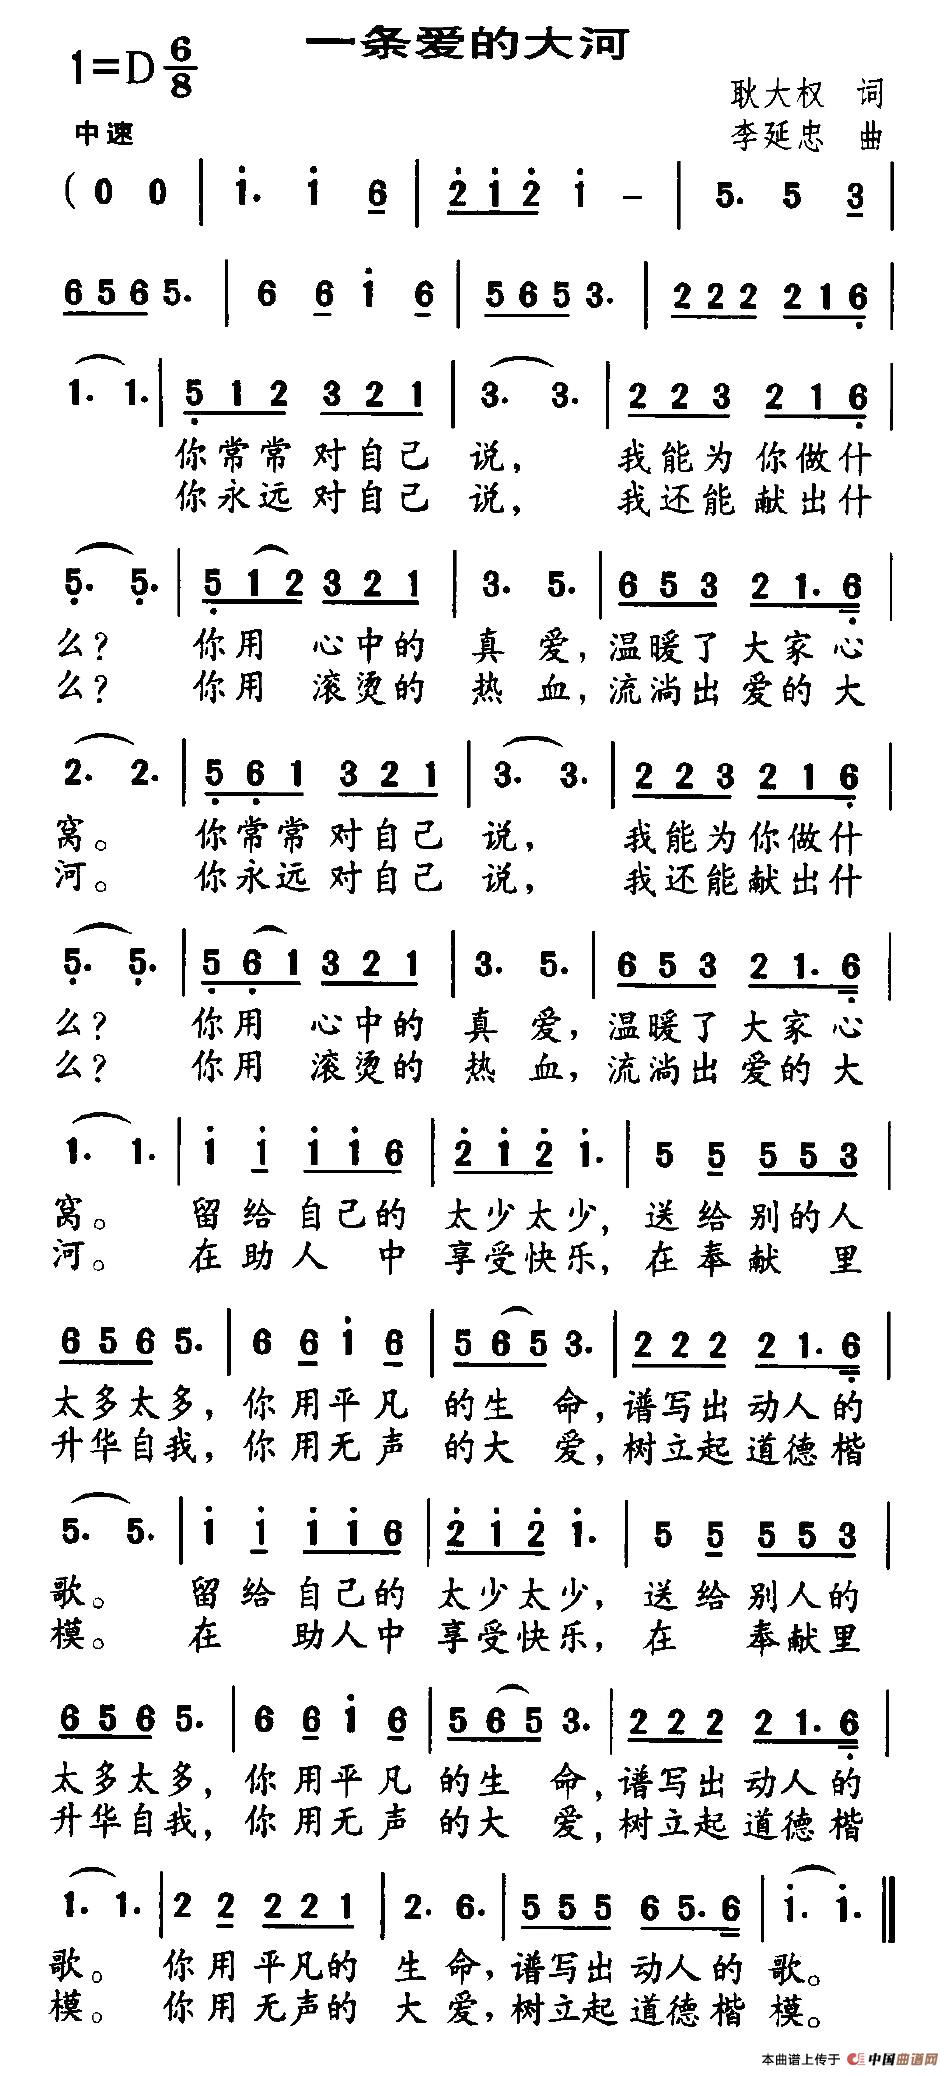 一条爱的大河
1=D 6/8
耿大权 词
中速
李延忠 曲
( 0 0 | i. i 6 | 2 i 2 i – | 5. 5 3 |
6 5 6 5. | 6 6 i 6 | 5 6 5 3. | 2 2 2 2 1 6 |
1. 1. | 5 1 2 3 2 1 | 3. 3. | 2 2 3 2 1 6 |
你常常对自己 说， 我能为你做什
你永远对自己 说， 我还能献出什
5. 5. | 5 1 2 3 2 1 | 3. 5. | 6 5 3 2 1. 6 |
么？ 你用 心中的 真 爱，温暖了大家心
么？ 你用 滚烫的 热 血，流淌出爱的大
2. 2. | 5 6 1 3 2 1 | 3. 3. | 2 2 3 2 1 6 |
窝。 你常常对自己 说， 我能为你做什
河。 你永远对自己 说， 我还能献出什
5. 5. | 5 6 1 3 2 1 | 3. 5. | 6 5 3 2 1. 6 |
么？ 你用 心中的 真 爱，温暖了大家心
么？ 你用 滚烫的 热 血，流淌出爱的大
1. 1. | i i i i 6 | 2 i 2 i. | 5 5 5 5 3 |
窝。 留给自己的 太少太少，送给别的人
河。 在助人 中 享受快乐，在奉献 里
6 5 6 5. | 6 6 i 6 | 5 6 5 3. | 2 2 2 2 1. 6 |
太多太多，你用平凡 的生 命，谱写出动人的
升华自我，你用无声 的大 爱，树立起道德楷
5. 5. | i i i i 6 | 2 i 2 i. | 5 5 5 5 3 |
歌。 留给自己的 太少太少，送给别人的
模。 在 助人中 享受快乐，在 奉献里
6 5 6 5. | 6 6 i 6 | 5 6 5 3. | 2 2 2 2 1. 6 |
太多太多，你用平凡 的生 命，谱写出动人的
升华自我，你用无声 的大 爱，树立起道德楷
1. 1. | 2 2 2 2 1 | 2. 6. | 5 5 5 6 5. 6 | i. i. ||
歌。 你用平凡的 生 命，谱写出动人的 歌。
模。 你用无声的 大 爱，树立起道德楷 模。
本曲谱上传于 中国曲谱网